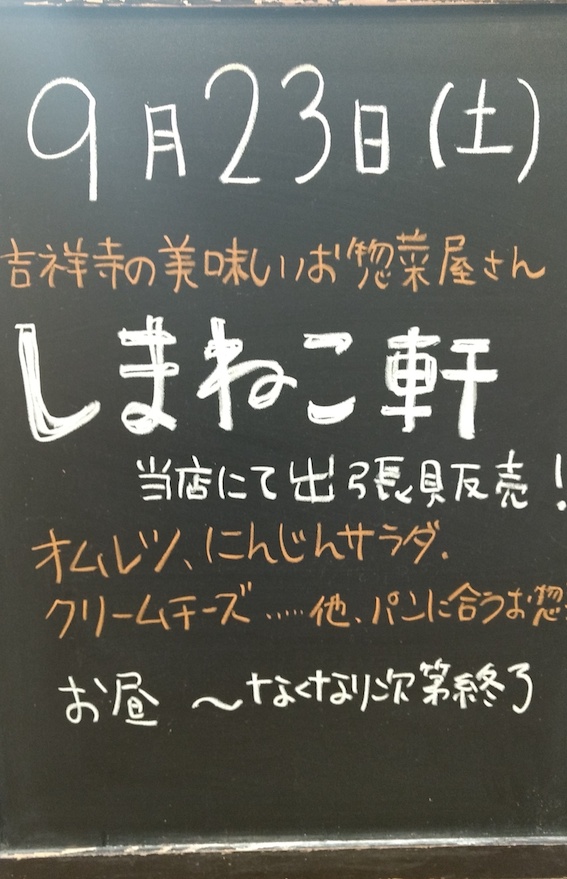 9月23日(土)
吉祥寺の美味しいお惣菜屋さん
しまねこ軒
当店にて出張販売!
オムレツ、にんじんサラダ.
クリームチーズ……他、パンに合うお惣
お昼 〜なくなり次第終了